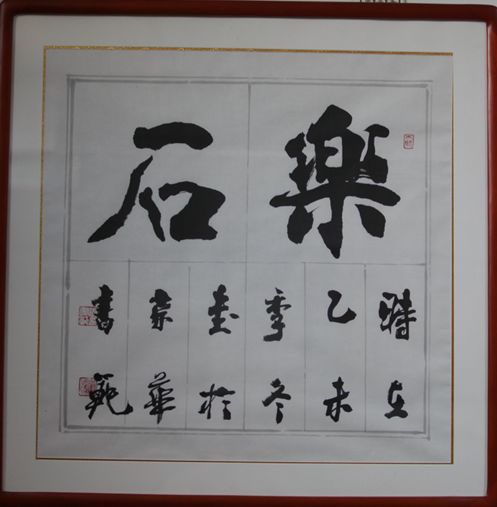 樂石
時在
乙未
季冬
於
京華
書範